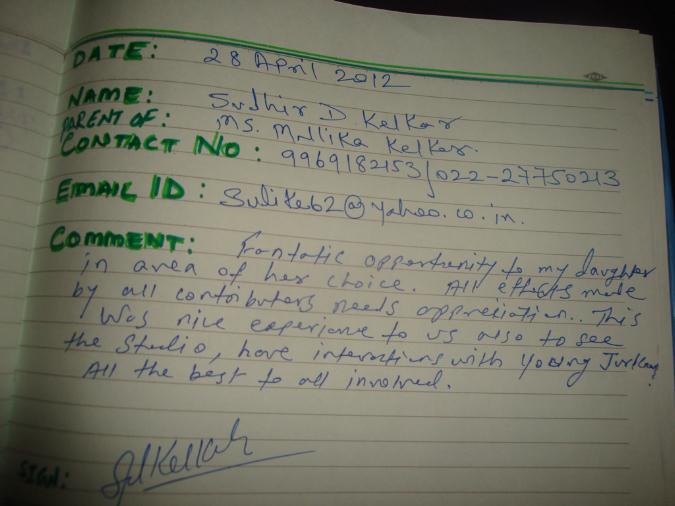 DATE: 28 April 2012
NAME: Sudhir D Kelkar
PARENT OF: Ms. Mallika Kelkar.
CONTACT NO: 9969182153/022-27750213
EMAIL ID: Sulike62@yahoo.co.in.
COMMENT: Fantatic opportunity to my daughter
in area of her choice. All effects made
by all contributers needs appreciation.. This
Was nice experience to us also to see
the Studio, have interactions with young Turkeys
All the best to all involved.
SIGN: SdKelkar